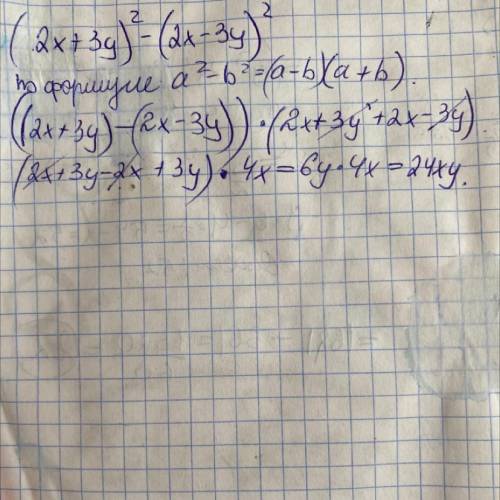 (2x+3y)²-(2x-3y)²
по формуле a²-b²=(a-b)(a+b).
((2x+3y)-(2x-3y))·(2x+3y+2x-3y)
(2x+3y-2x+3y)·4x=6y·4x=24xy.